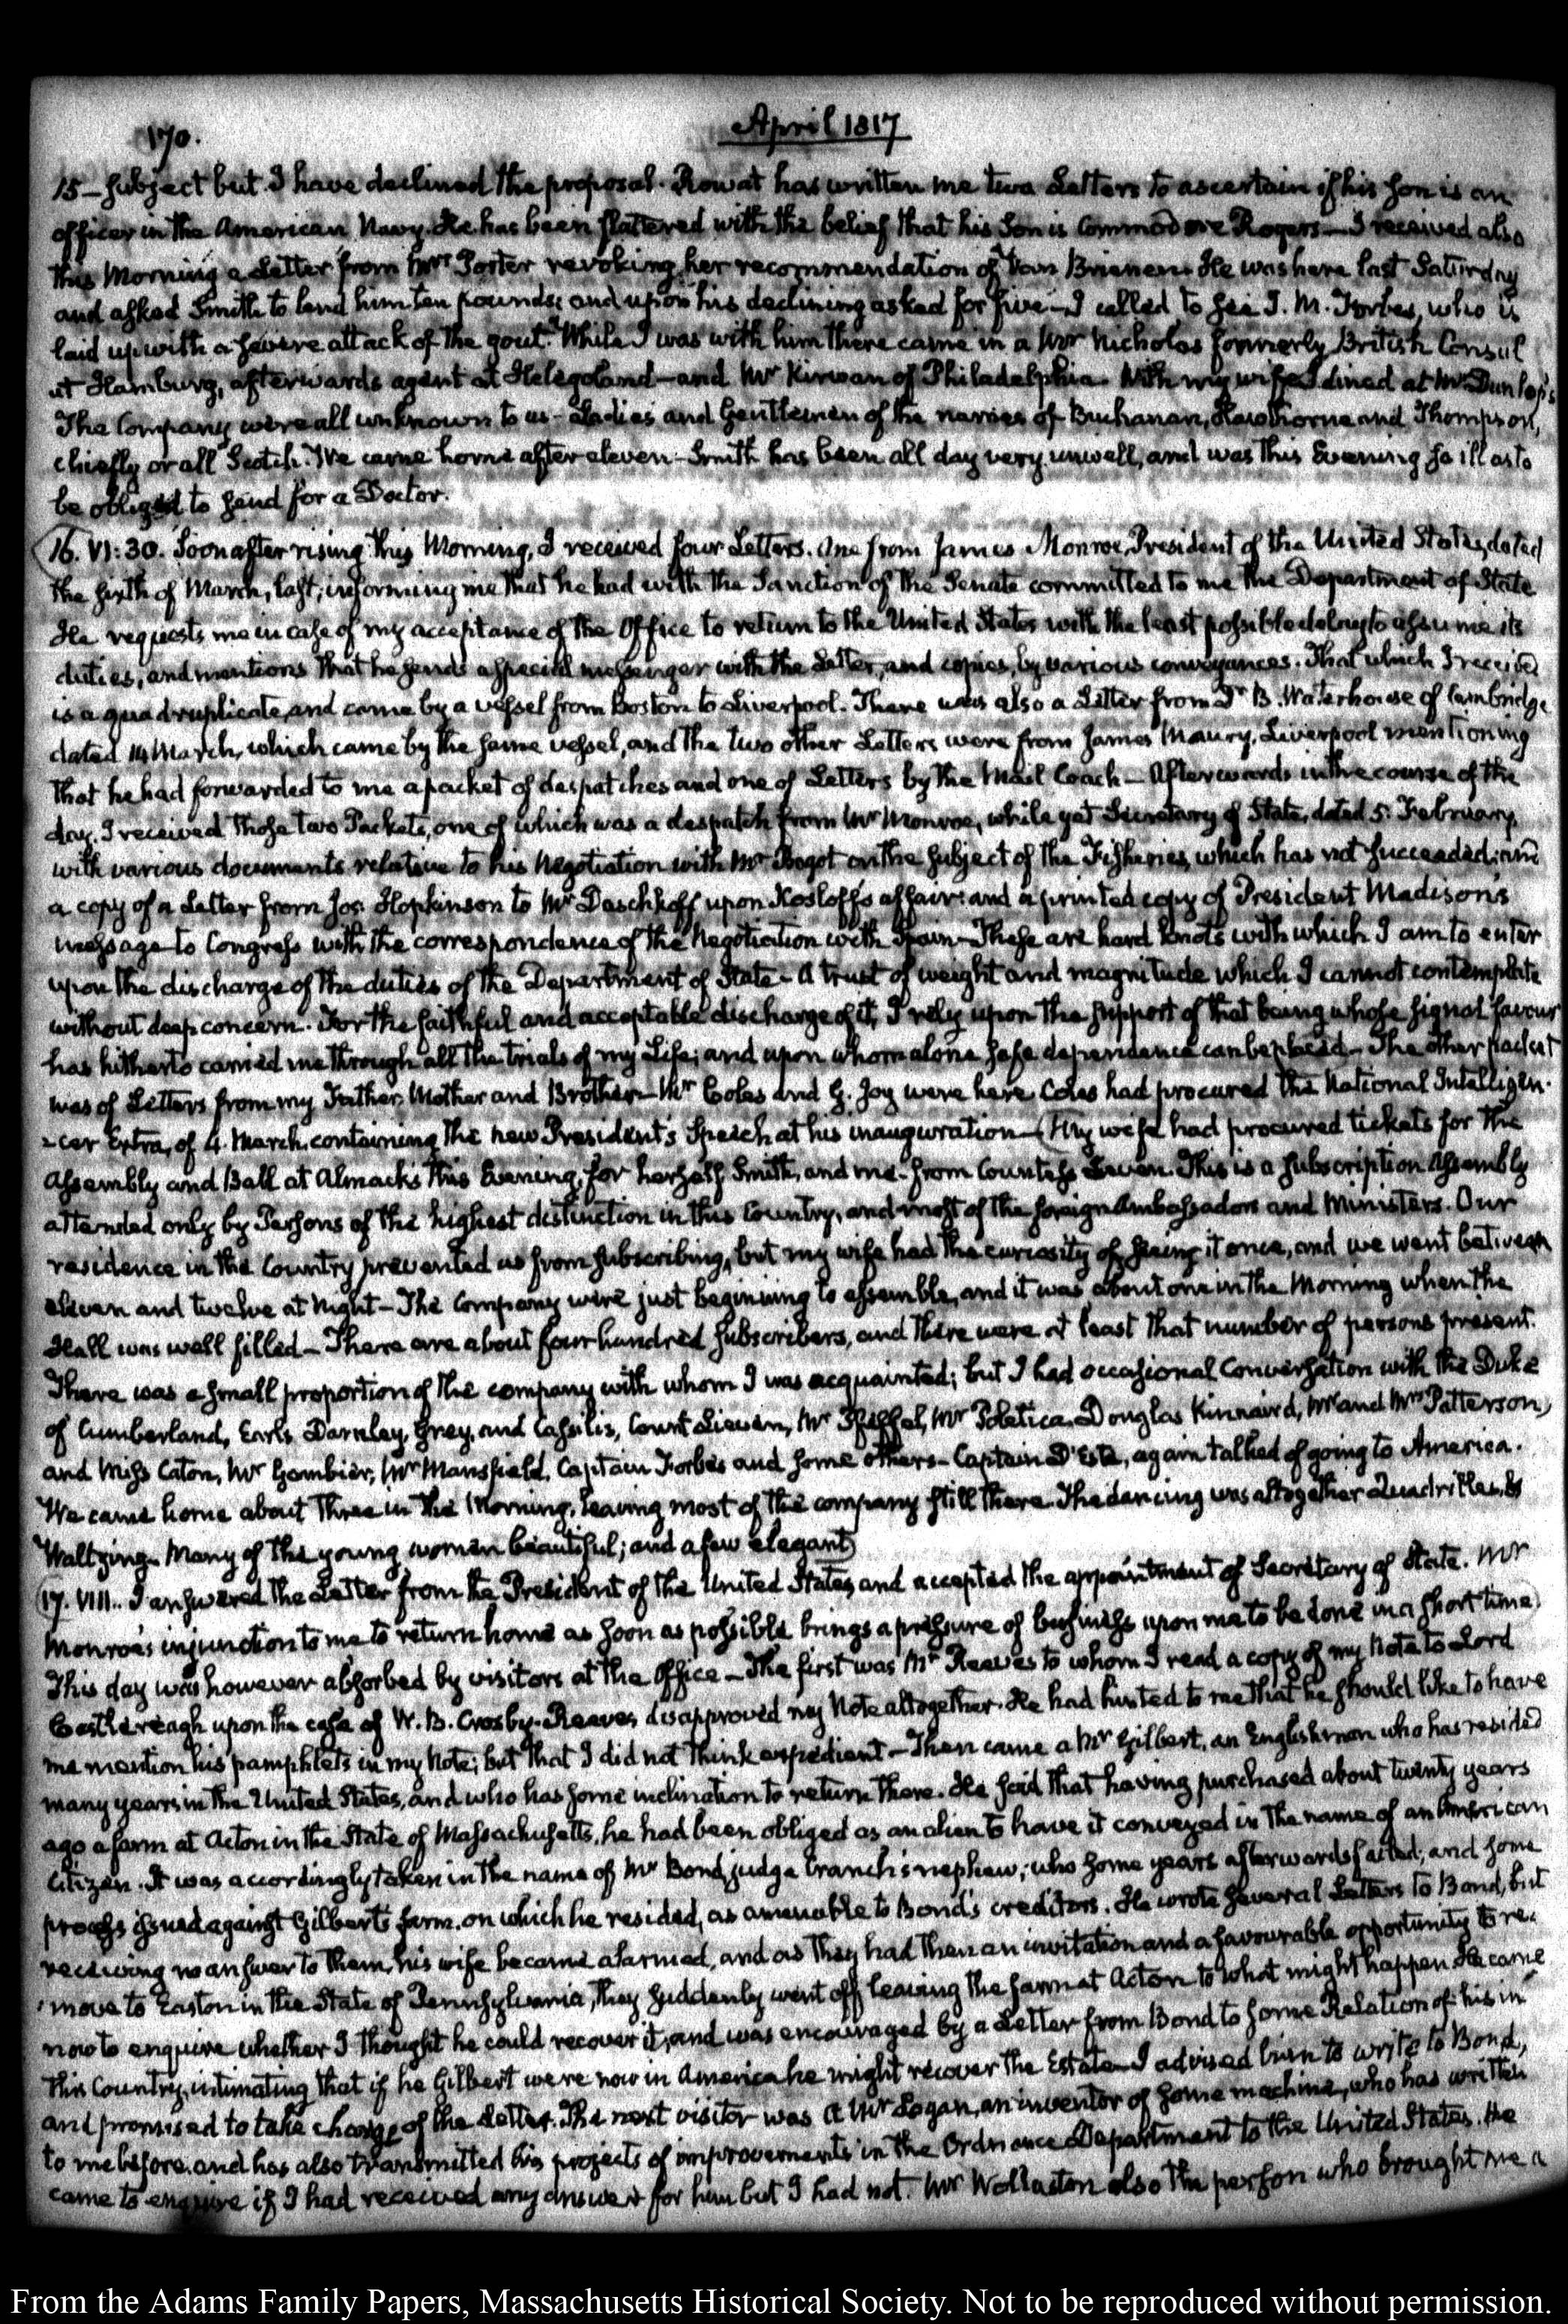 170.
April 1817
15 - subject but I have declined the proposal. Rowat has written me two Letters to ascertain if his Son is an
officer in the American Navy. He has been flattered with the belief that his Son is Commodore Rogers - I received also
this Morning a Letter from Mrs Porter revoking her recommendation of Van Brienen. He was here last Saturday
and asked Smith to lend him ten pounds; and upon his declining asked for five - I called to see J. M. Forbes, who is
laid up with a severe attack of the gout. While I was with him there came in a Mr Nicholas formerly British Consul
at Hamburg, afterwards agent at Helegoland - and Mr Kirwan of Philadelphia. With my wife I dined at Mr Dunlop's
The Company were all unknown to us - Ladies and Gentlemen of the names of Buchanan, Hawthorne and Thompson,
chiefly or all Scotch. We came home after eleven - Smith has been all day very unwell, and was this Evening so ill as to
be obliged to send for a Doctor.
16. VI:30. Soon after rising this Morning, I received four Letters. One from James Monroe, President of the United States, dated
the sixth of March, last; informing me that he had with the Sanction of the Senate committed to me the Department of State
He requests me in case of my acceptance of the Office to return to the United States with the least possible delay to assume its
duties, and mentions that he sends a special messenger with the Letter, and copies, by various conveyances. That which I received
is a quadruplicate, and came by a vessel from Boston to Liverpool. There was also a Letter from Dr B. Waterhouse of Cambridge
dated 14 March, which came by the same vessel, and the two other Letters were from James Maury, Liverpool mentioning
that he had forwarded to me a packet of despatches and one of Letters by the Mail Coach - Afterwards in the course of the
day. I received those two Packets, one of which was a despatch from Mr Monroe, while yet Secretary of State, dated 5. February,
with various documents relative to his Negotiation with Mr Bagot on the subject of the Fisheries, which has not succeeded; and
a copy of a Letter from Jos. Hopkinson to Mr Daschkoff upon Kosloff's affair: and a printed copy of President Madison's
message to Congress with the correspondence of the Negotiation with Spain - These are hard knots with which I am to enter
upon the discharge of the duties of the Department of State - A trust of weight and magnitude which I cannot contemplate
without deep concern. For the faithful and acceptable discharge of it, I rely upon the support of that being whose signal favour
has hitherto carried me through all the trials of my Life; and upon whom alone safe dependence can be placed - The other packet
was of Letters from my Father, Mother and Brother - Mr Coles and G. Joy were here. Coles had procured the National Intelligen-
-cer Extra, of 4. March. containing the new President's Speech at his inauguration - (My wife had procured tickets for the
Assembly and Ball at Almack's this Evening, for herself, Smith, and me - from Countess Lieven. This is a subscription Assembly
attended only by Persons of the highest distinction in this Country, and most of the foreign Ambassadors and Ministers. Our
residence in the Country prevented us from subscribing, but my wife had the curiosity of seeing it once, and we went between
eleven and twelve at Night - The Company were just beginning to assemble, and it was about one in the Morning when the
Hall was well filled - There are about four hundred subscribers, and there were at least that number of persons present.
There was a small proportion of the company with whom I was acquainted; but I had occasional Conversation with the Duke
of Cumberland, Earls Darnley, Grey, and Cassilis, Count Lieven, Mr Pfeffel, Mr Poletica, Douglas Kinnaird, Mr and Mrs Patterson,
and Miss Caton, Mr Gambier, Mr Mansfield, Captain Forbes and some others - Captain D'Este, again talked of going to America.
We came home about three in the Morning, leaving most of the company still there. The dancing was altogether Quadrilles, &
Waltzing. Many of the young women beautiful; and a few elegant)
17. VIII.. I answered the Letter from the President of the United States, and accepted the appointment of Secretary of State. Mr
Monroe's injunction to me to return home as soon as possible brings a pressure of business upon me to be done in a short time
This day was however absorbed by visitors at the Office - The first was Mr Reeves to whom I read a copy of my Note to Lord
Castlereagh upon the case of W. B. Crosby. Reeves disapproved my Note altogether. He had hinted to me that he should like to have
me mention his pamphlets in my Note; but that I did not think expedient - Then came a Mr Gilbert, an Englishman who has resided
many years in the United States, and who has some inclination to return there. He said that having purchased about twenty years
ago a farm at Acton in the State of Massachusetts, he had been obliged as an alien to have it conveyed in the name of an American
Citizen. It was accordingly taken in the name of Mr Bond, judge Cranch's nephew; who some years afterwards failed; and some
process issued against Gilbert's farm, on which he resided, as amenable to Bond's creditors. He wrote several Letters to Bond, but
receiving no answer to them, his wife became alarmed, and as they had then an invitation and a favourable opportunity to re-
-move to Easton in the State of Pennsylvania, they suddenly went off leaving the farm at Acton to what might happen. He came
now to enquire whether I thought he could recover it; and was encouraged by a Letter from Bond to some Relation of his in
this Country, intimating that if he Gilbert were now in America he might recover the Estate - I advised him to write to Bond,
and promised to take charge of the Letter. The next visitor was a Mr Logan, an inventor of some machine, who has written
to me before, and has also transmitted his projects of improvements in the Ordnance Department to the United States. He
came to enquire if I had received any answer for him but I had not. Mr Wollaston also the person who brought me a
From the Adams Family Papers, Massachusetts Historical Society. Not to be reproduced without permission.